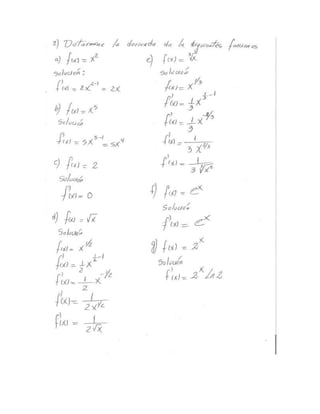 2) Determine la derivada de la siguientes funciones
a) f(x) = x²
Solución:
f'(x) = 2x²⁻¹ = 2x
b) f(x) = x⁵
Solució
f'(x) = 5x⁵⁻¹ = 5x⁴
c) f(x) = 2
Solució
f'(x) = 0
d) f(x) = √x
Solució
f(x) = x^1/2
f'(x) = 1/2 x^1/2-1
f'(x) = 1/2 x^-1/2
f'(x) = 1/2x^1/2
f'(x) = 1/2√x
e) f(x) = ∛x
Solució
f(x) = x^1/3
f'(x) = 1/3 x^1/3-1
f'(x) = 1/3 x^-2/3
f'(x) = 1/3x^2/3
f'(x) = 1/3∛x²
f) f(x) = eˣ
Solució
f'(x) = eˣ
g) f(x) = 2ˣ
Solución
f'(x) = 2ˣ Ln2